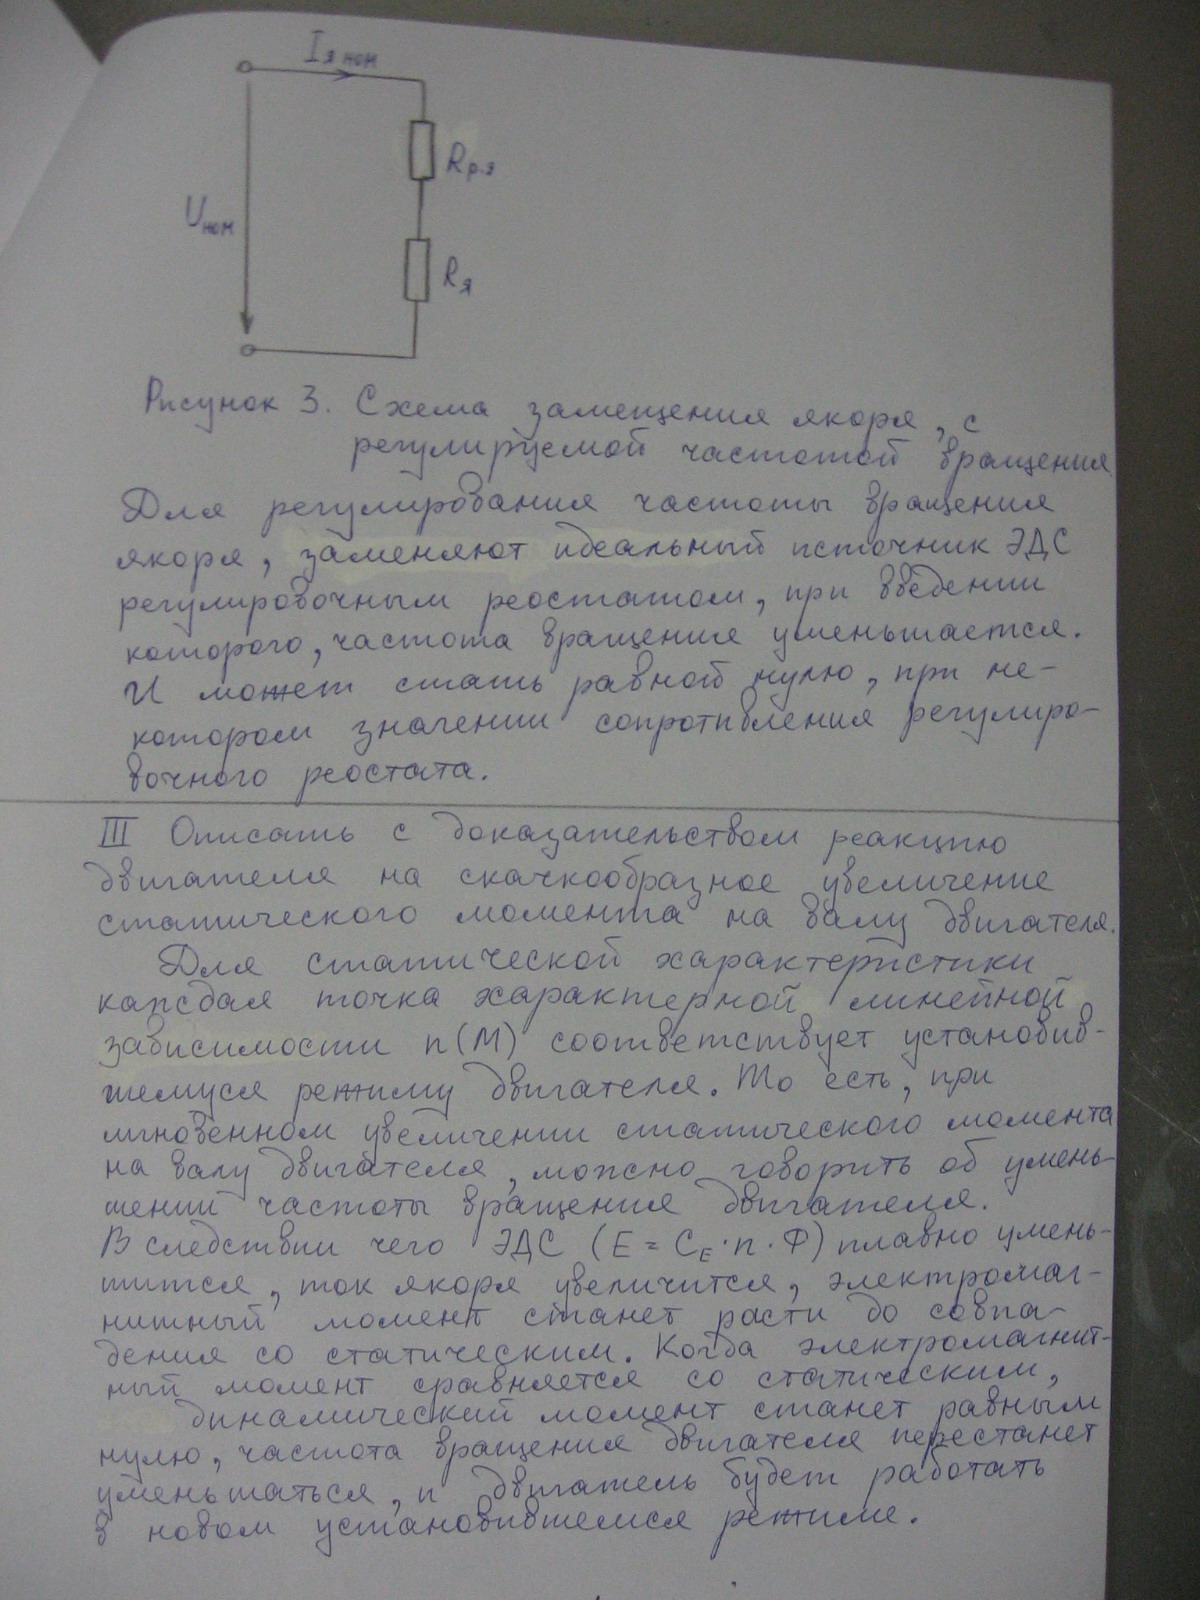 Iя ном
Rр.я
Uном
Rя
Рисунок 3. Схема замещения якоря, с
регулируемой частотой вращения
Для регулирования частоты вращения
якоря, заменяют идеальный источник ЭДС
регулировочным реостатом, при введении
которого, частота вращения уменьшается.
И может стать равной нулю, при не-
котором значении сопротивления регулиро-
вочного реостата.
III Описать с доказательством реакцию
двигателя на скачкообразное увеличение
статического момента на валу двигателя.
Для статической характеристики
каждая точка характерной линейной
зависимости n(M) соответствует установив-
шемуся режиму двигателя. То есть, при
мгновенном увеличении статического момента
на валу двигателя, можно говорить об умень-
шении частоты вращения двигателя.
В следствии чего ЭДС (E = CE·n·Ф) плавно умень-
шится, ток якоря увеличится, электромаг-
нитный момент станет расти до совпа-
дения со статическим. Когда электромагнит-
ный момент сравняется со статическим,
динамический момент станет равным
нулю, частота вращения двигателя перестанет
уменьшаться, и двигатель будет работать
в новом установившемся режиме.